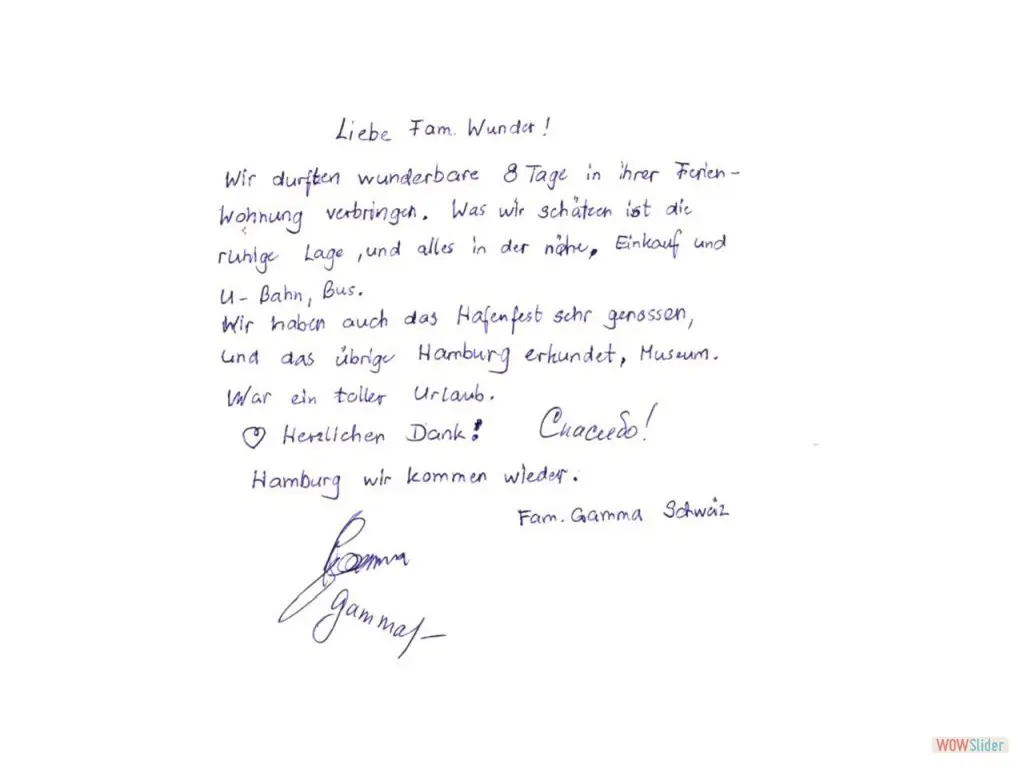 Liebe Fam. Wunder!
Wir durften wunderbare 8 Tage in ihrer Ferien-
Wohnung verbringen. Was wir schätzen ist die
ruhige Lage, und alles in der nähe, Einkauf und
U-Bahn, Bus.
Wir haben auch das Hafenfest sehr genossen,
und das übrige Hamburg erkundet, Museum.
War ein toller Urlaub.
♡ Herzlichen Dank! Спасибо!
Hamburg wir kommen wieder.
Fam. Gamma Schweiz
Gamma
Gamma
WOWSlider